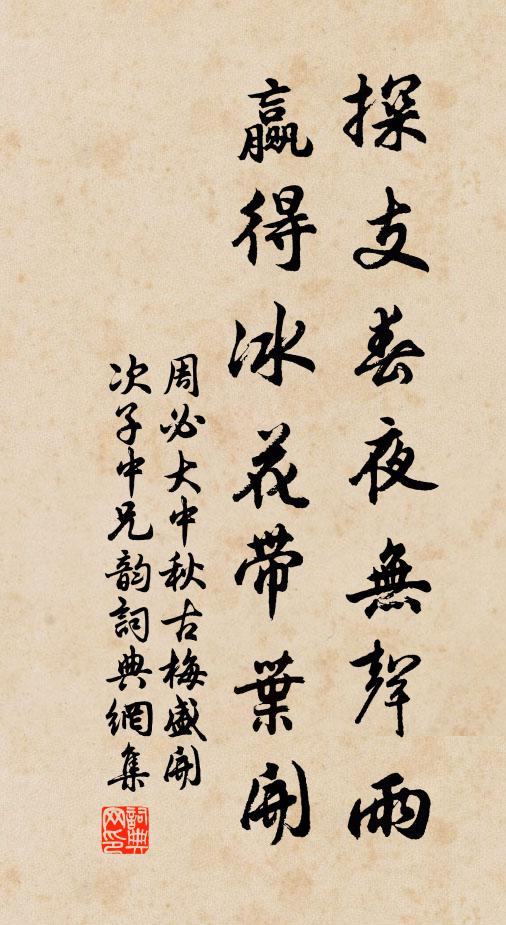 探支春夜無聲雨
贏得冰花帶葉開
周必大中秋古梅盛開
次子中兄韵詞典網集
詞典網印